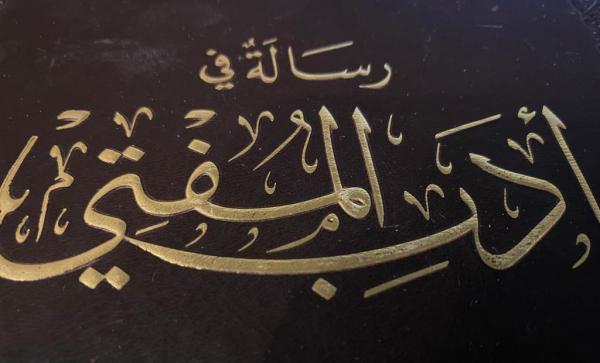 رسالةٌ في
أدبِ المُفْتِي